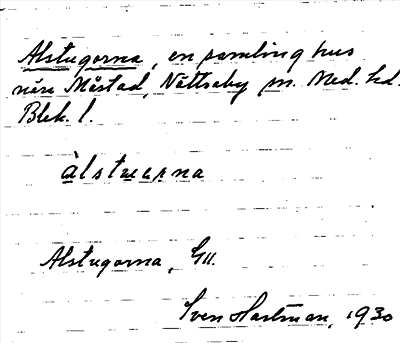 Alstugorna, en samling hus
nära Måstad, Nättraby sn. Med. hd.
Blek. l.
àlstuɯɹna
Alstugorna, GII.
Sven Hartman, 1930